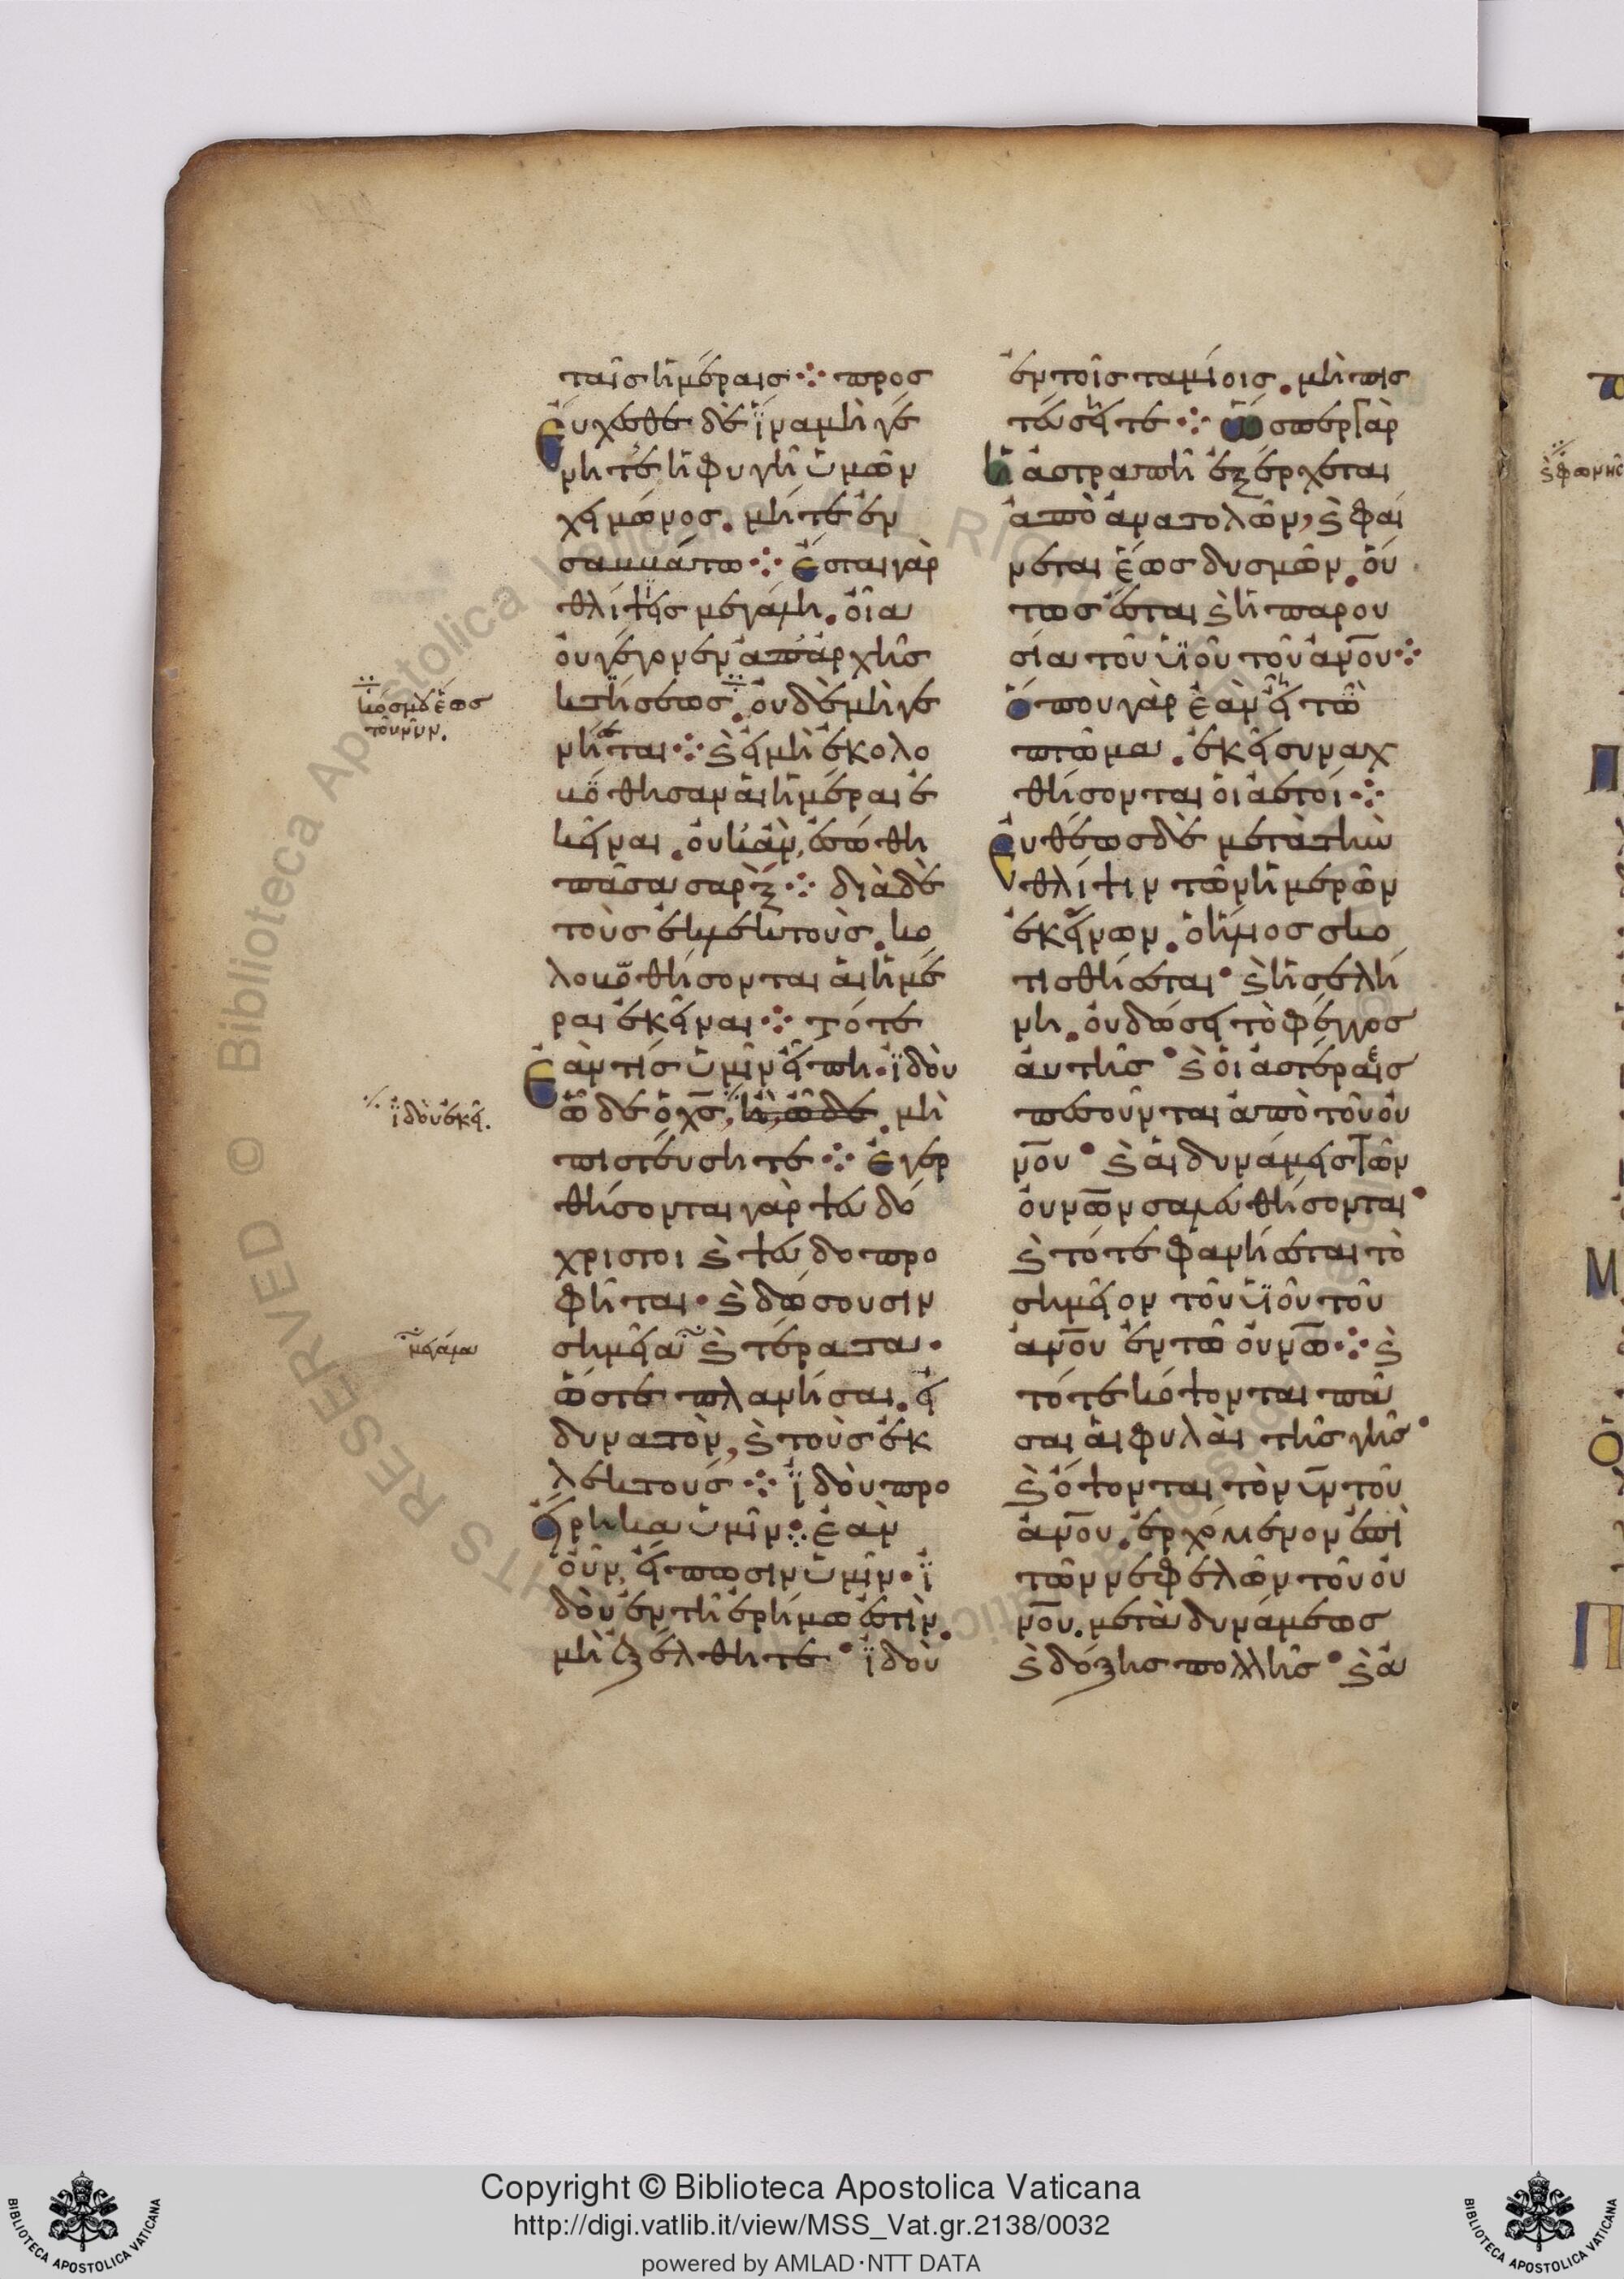 ταῖς ἡμέραις ⁘ προσ
εύχεσθε δὲ ἵνα μὴ γέ
νητε ἡ φυγὴ ὑμῶν
χειμῶνος. μήτε ἐν
σαμμάτω ⁘ ἔσται γὰρ
θλίψης μεγάλη. οἵα
οὐ γέγονεν ἀπ' ἀρχῆς
κτήσεως. οὐδὲ μὴ γέ
νηται ⁘ ϗ εἰ μὴ ἐκολο
βώθησαν αἱ ἡμέραι ἐ
κεῖναι. οὐκ ἂν ἐσώθη
πᾶσα σάρξ ⁘ διὰ δὲ
τοὺς ἐκλεκτοὺς. κο
λοβωθήσονται αἱ ἡμέ
ραι ἐκεῖναι ⁘ τότε
ἐάν τις ὑμῖν εἴπη· ἰδοὺ
ὧδε ὁ χ̅ς̅, ἢ, ὧδε. μὴ
πιστεύσητε ⁘ ἐγερ
θήσονται γὰρ ψευδό
χριστοι ϗ ψευδοπρο
φῆται· ϗ δώσουσιν
σημεῖα ϗ τέρατα·
ὥστε πλανῆσαι. εἰ
δυνατὸν, ϗ τοὺς ἐκ
λεκτούς ⁘ ἰδοὺ προ
είρηκα ὑμῖν ⁘ ἐὰν
οὖν, εἴπωσιν ὑμῖν· ἰ
δοὺ ἐν τῆ ἐρήμω ἐστὶν.
μὴ ἐξέλθητε· ἰδοὺ
κόσμου ἕως
τοῦ νῦν.
ἰδοὺ ἐκεῖ.
μεγάλα
ἐν τοῖς ταμίοις. μὴ πισ
τεύσητε ⁘ ὥσπερ γὰρ
ἡ ἀστραπὴ ἐξέρχεται
ἀπὸ ἀνατολῶν, ϗ φαί
νεται ἕως δυσμῶν. οὕ
τως ἔσται ϗ ἡ παρου
σία τοῦ υἱοῦ τοῦ ἀν̅ο̅υ̅ ⁘
ὅπου γὰρ ἐὰν ἦ τὸ
πτῶμα. ἐκεῖ συναχ
θήσονται οἱ ἀετοί ⁘
εὐθέως δὲ μετὰ τὴν
θλίψιν τῶν ἡμερῶν
ἐκείνων. ὁ ἥλιος σκο
τισθήσεται· ϗ ἡ σελή
νη. οὐ δώσει τὸ φέγγος
αὐτῆς· ϗ οἱ ἀστέρες
πεσοῦνται ἀπὸ τοῦ οὐ
ν̅ο̅υ̅· ϗ αἱ δυνάμεις τῶν
οὐν̅ῶ̅ν σαλευθήσονται·
ϗ τότε φανήσεται τὸ
σημεῖον τοῦ υἱοῦ τοῦ
ἀν̅ο̅υ̅ ἐν τῶ οὐν̅ῶ̅ ⁘ ϗ
τότε κόψονται πᾶ
σαι αἱ φυλαὶ τῆς γῆς·
ϗ ὄψονται τὸν υ̅ν̅ τοῦ
ἀν̅ο̅υ̅. ἐρχόμενον ἐπὶ
τῶν νεφελῶν τοῦ οὐ
ν̅ο̅υ̅. μετὰ δυνάμεως
ϗ δόξης πολλῆς· ϗ ἀ
Copyright © Biblioteca Apostolica Vaticana
http://digi.vatlib.it/view/MSS_Vat.gr.2138/0032
powered by AMLAD·NTT DATA
BIBLIOTECA APOSTOLICA VATICANA
BIBLIOTECA APOSTOLICA VATICANA